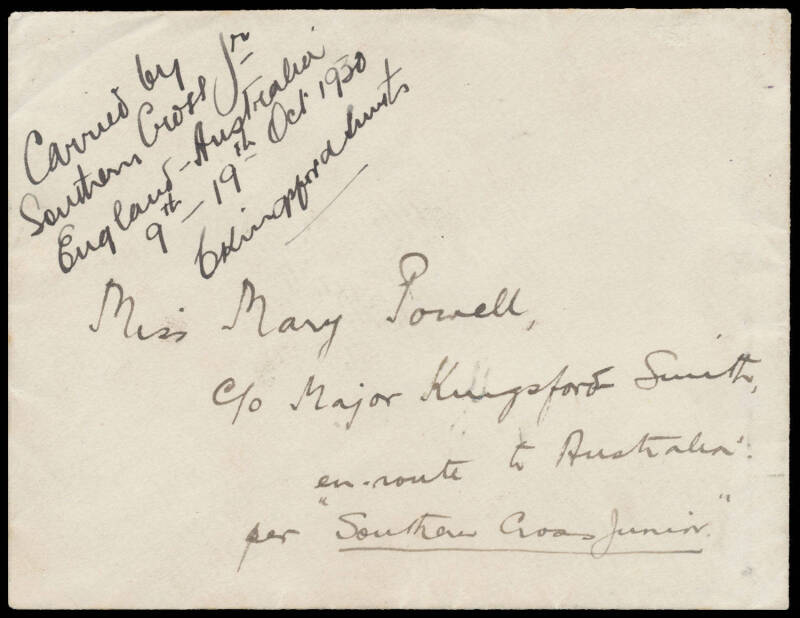 Carried by
Southern Cross Jr
England - Australia
9th - 19th Oct 1930
CKingsford Smith
Miss Mary Powell,
c/o Major Kingsford Smith,
"en-route to Australia".
per "Southern Cross Junior."